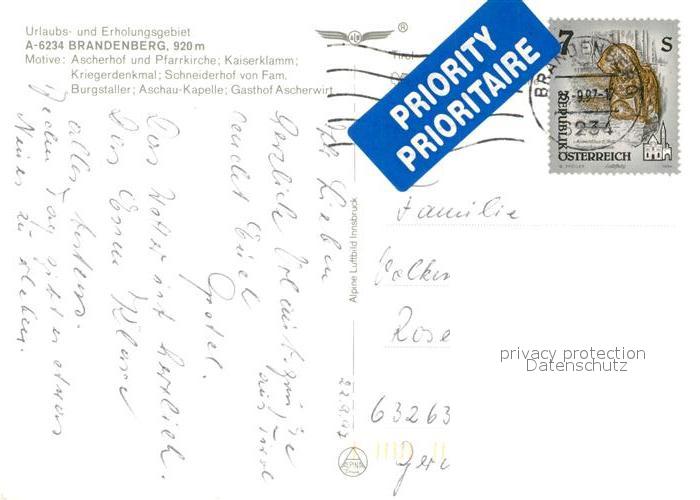 Urlaubs- und Erholungsgebiet
A-6234 BRANDENBERG, 920 m
Motive: Ascherhof und Pfarrkirche; Kaiserklamm;
Kriegerdenkmal; Schneiderhof von Fam.
Burgstaller; Aschau-Kapelle; Gasthof Ascherwirt
®
PRIORITY
PRIORITAIRE
7 S
REPUBLIK
ÖSTERREICH
6234
Alpine Luftbild Innsbruck
22.9.97
Ihr Lieben
Herzliche
aus Tirol
sendet Euch
Gretel.
Das Wetter ist herrlich.
Das Essen Klasse
alles bestens.
Jeden Tag gibt es etwas
Neues zu erleben.
Familie
Volker
Rose
63263
privacy protection
Datenschutz
ALPINA